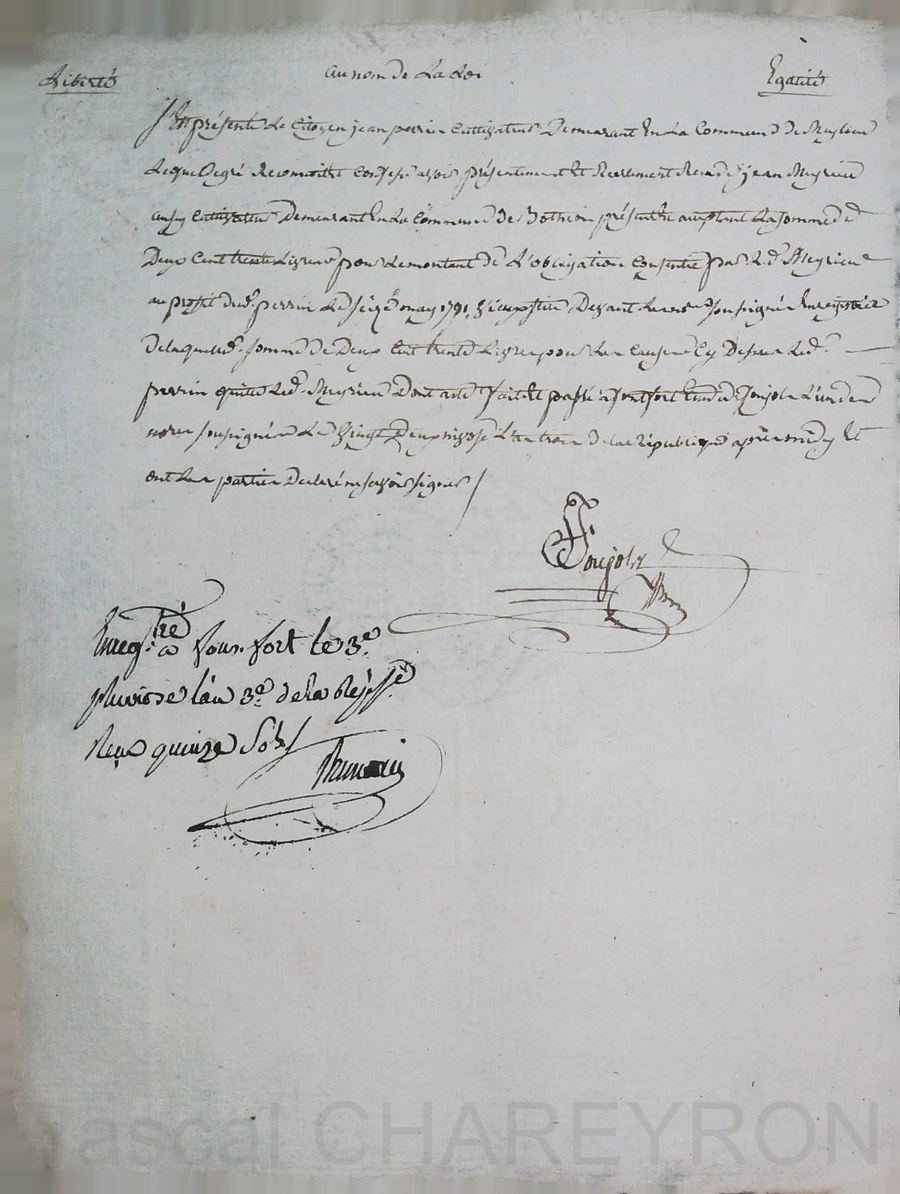 Liberté au nom de La Loi Egalité
Est présent Le Citoyen jean perrin Cultivateur Demeurant En La Commune de
Lequel de gré Reconnoitre Confesse avoir présentement Et Reellement Recu de jean Meyrieu
aussy Cultivateur Demeurant En La Commune de présent acceptant La somme de
Deux Cent trente Livres pour Le montant de L'obligation Consentie par Led. Meyrieu
au proffit dud. perrin Le seize may 1791 Devant Le nore soussigné Enregistrée
de laquelle somme de Deux Cent trente Livres pour Les Causes Cy Dessus Led.
perrin quitte Led. Meyrieu Dont acte fait Et passé a fontfort Etude Soujols L'un des
nores soussignés Le Vingt Deux nivose L'an trois de la République après midy Et
ont Les parties Declaré ne savoir signer /
Soujols
nre
Enregtré a Fons-fort le 3e
pluviose l'an 3e de la Répe
Reçu quinze Sols
ascal CHAREYRON